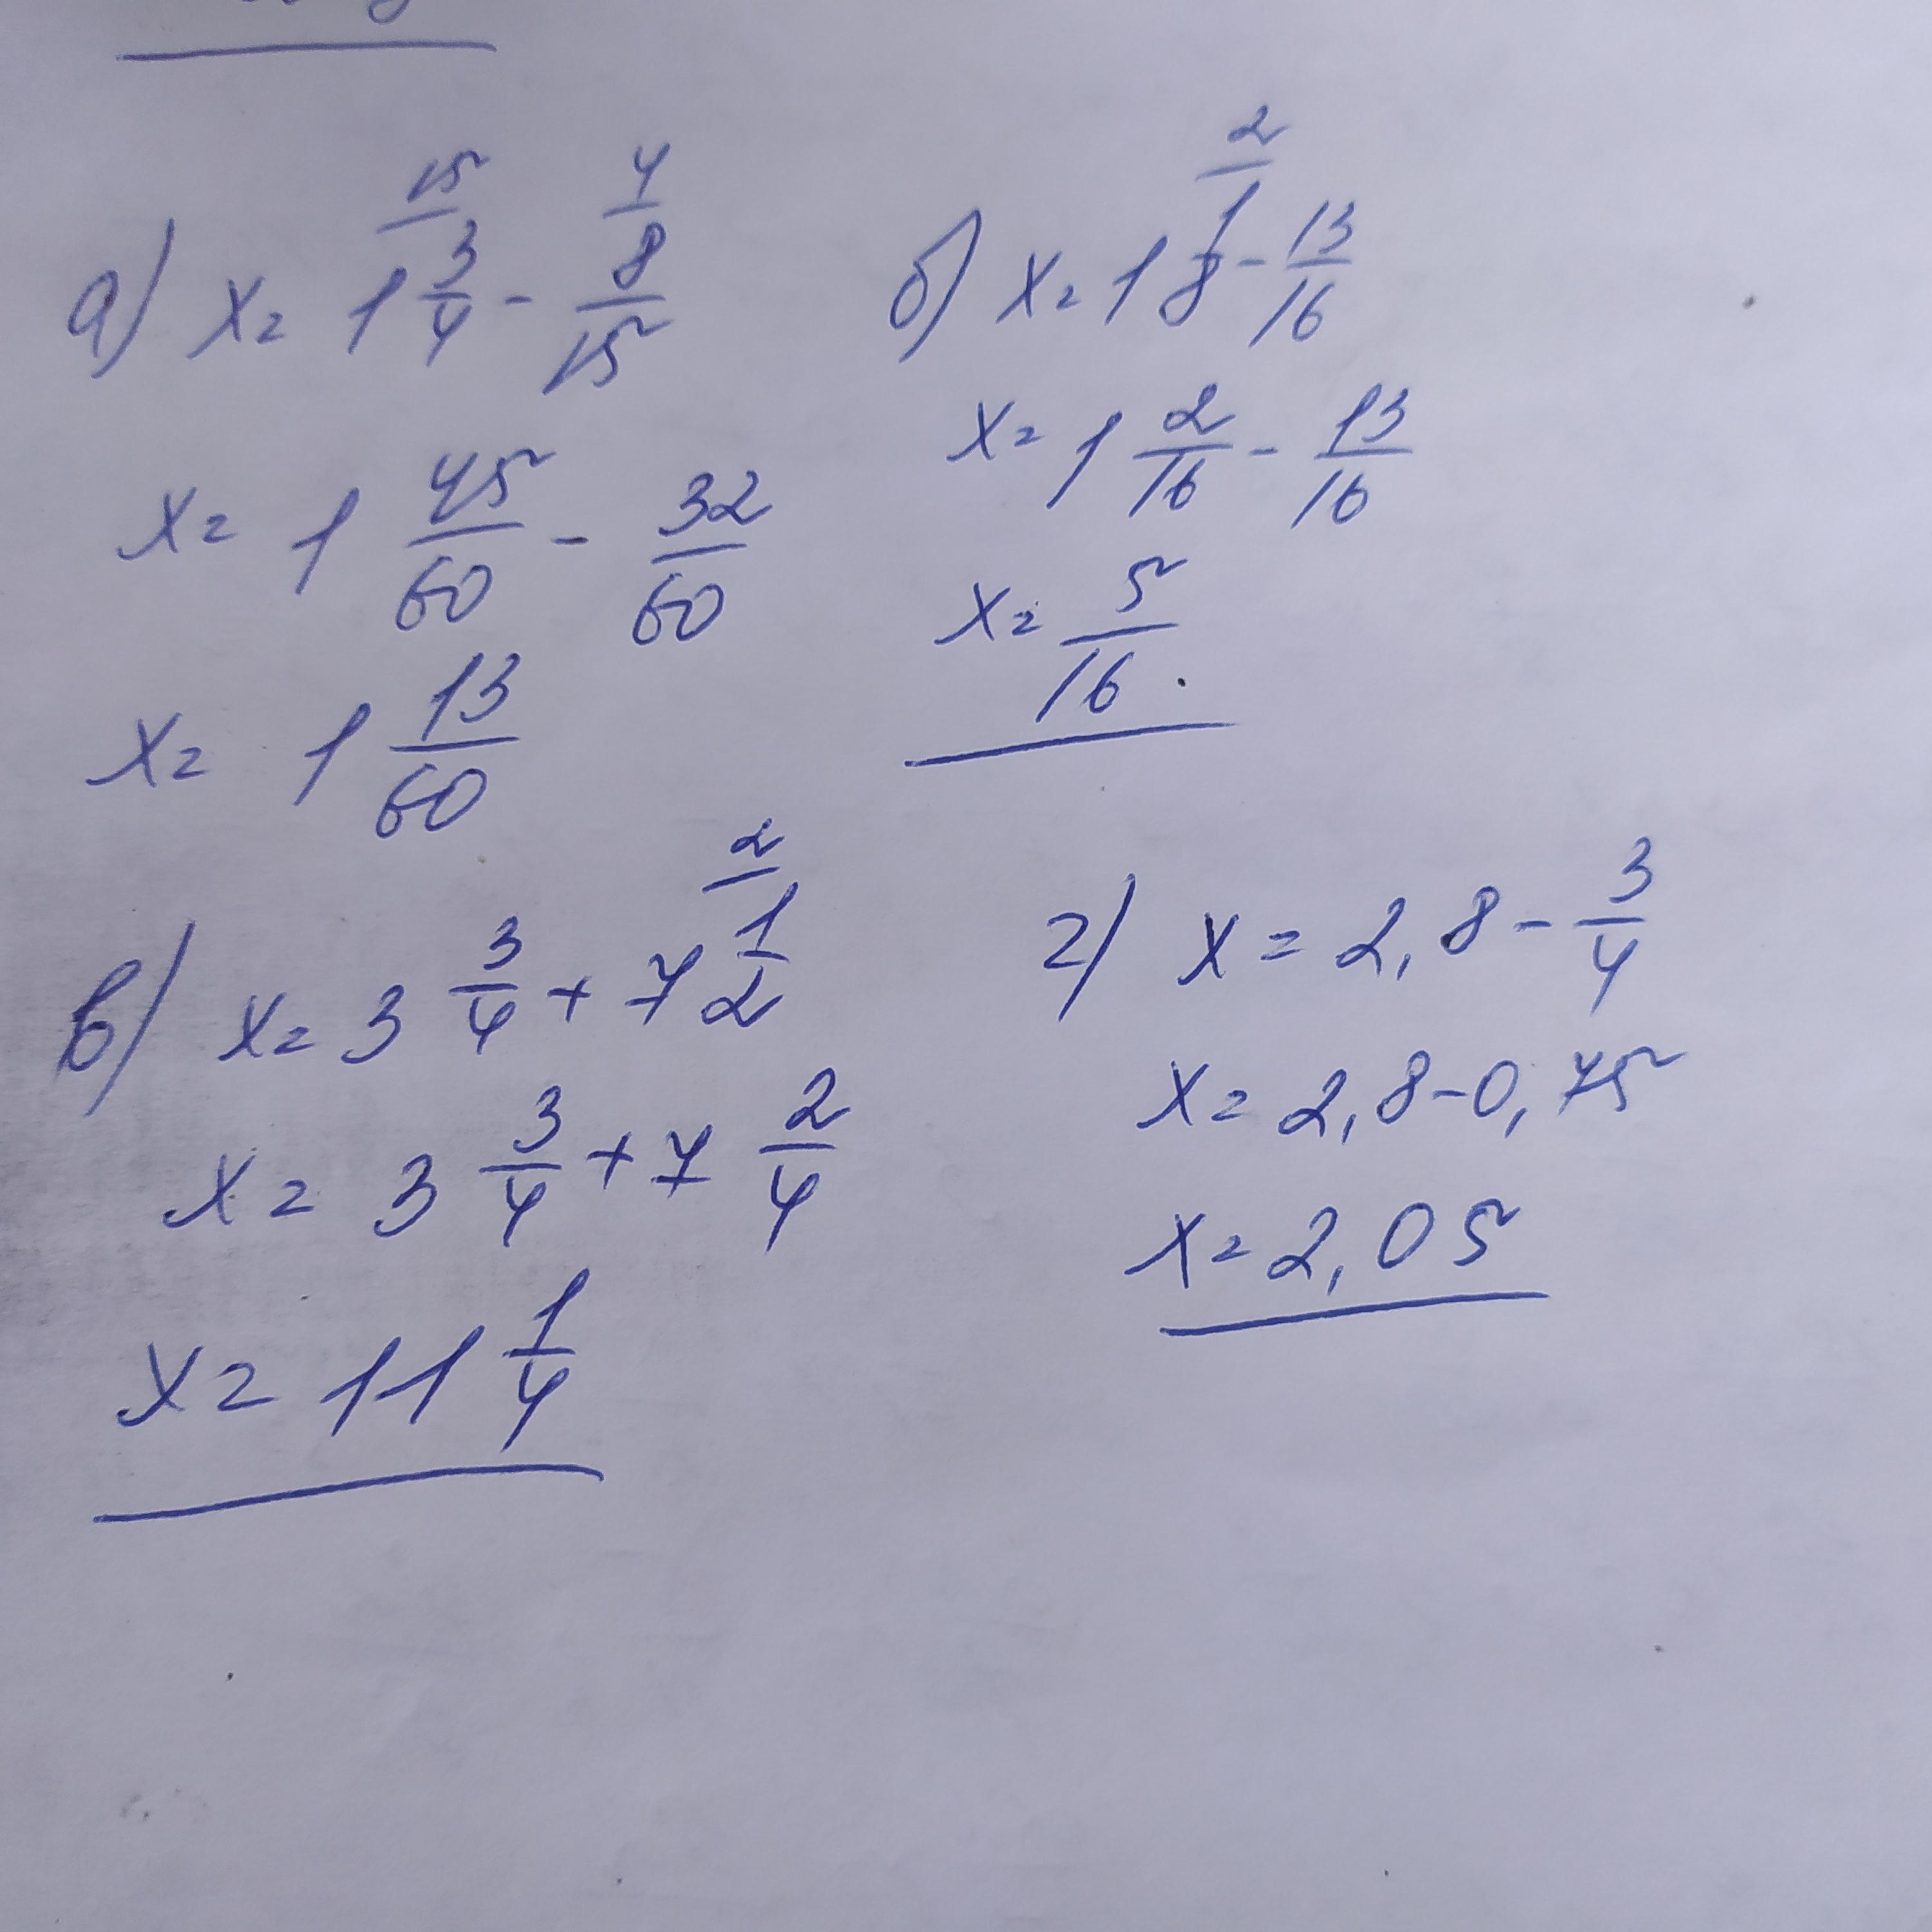 а) x = 1 3/4 - 8/15
15 4
x = 1 45/60 - 32/60
x = 1 13/60
б) x = 1 1/8 - 13/16
2
x = 1 2/16 - 13/16
x = 5/16.
в) x = 3 3/4 + 7 1/2
2
x = 3 3/4 + 7 2/4
x = 11 1/4
г) x = 2,8 - 3/4
x = 2,8 - 0,75
x = 2,05